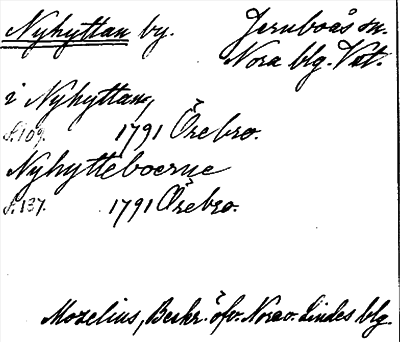 Nyhyttan by. Jernboås sn.
Nora blg. Vstl.
i Nyhyttan,
s. 109. 1791 Örebro.
Nyhytteboerne
s. 137. 1791 Örebro.
Mozelius, Beskr. öfv. Nora o. Lindes blg.